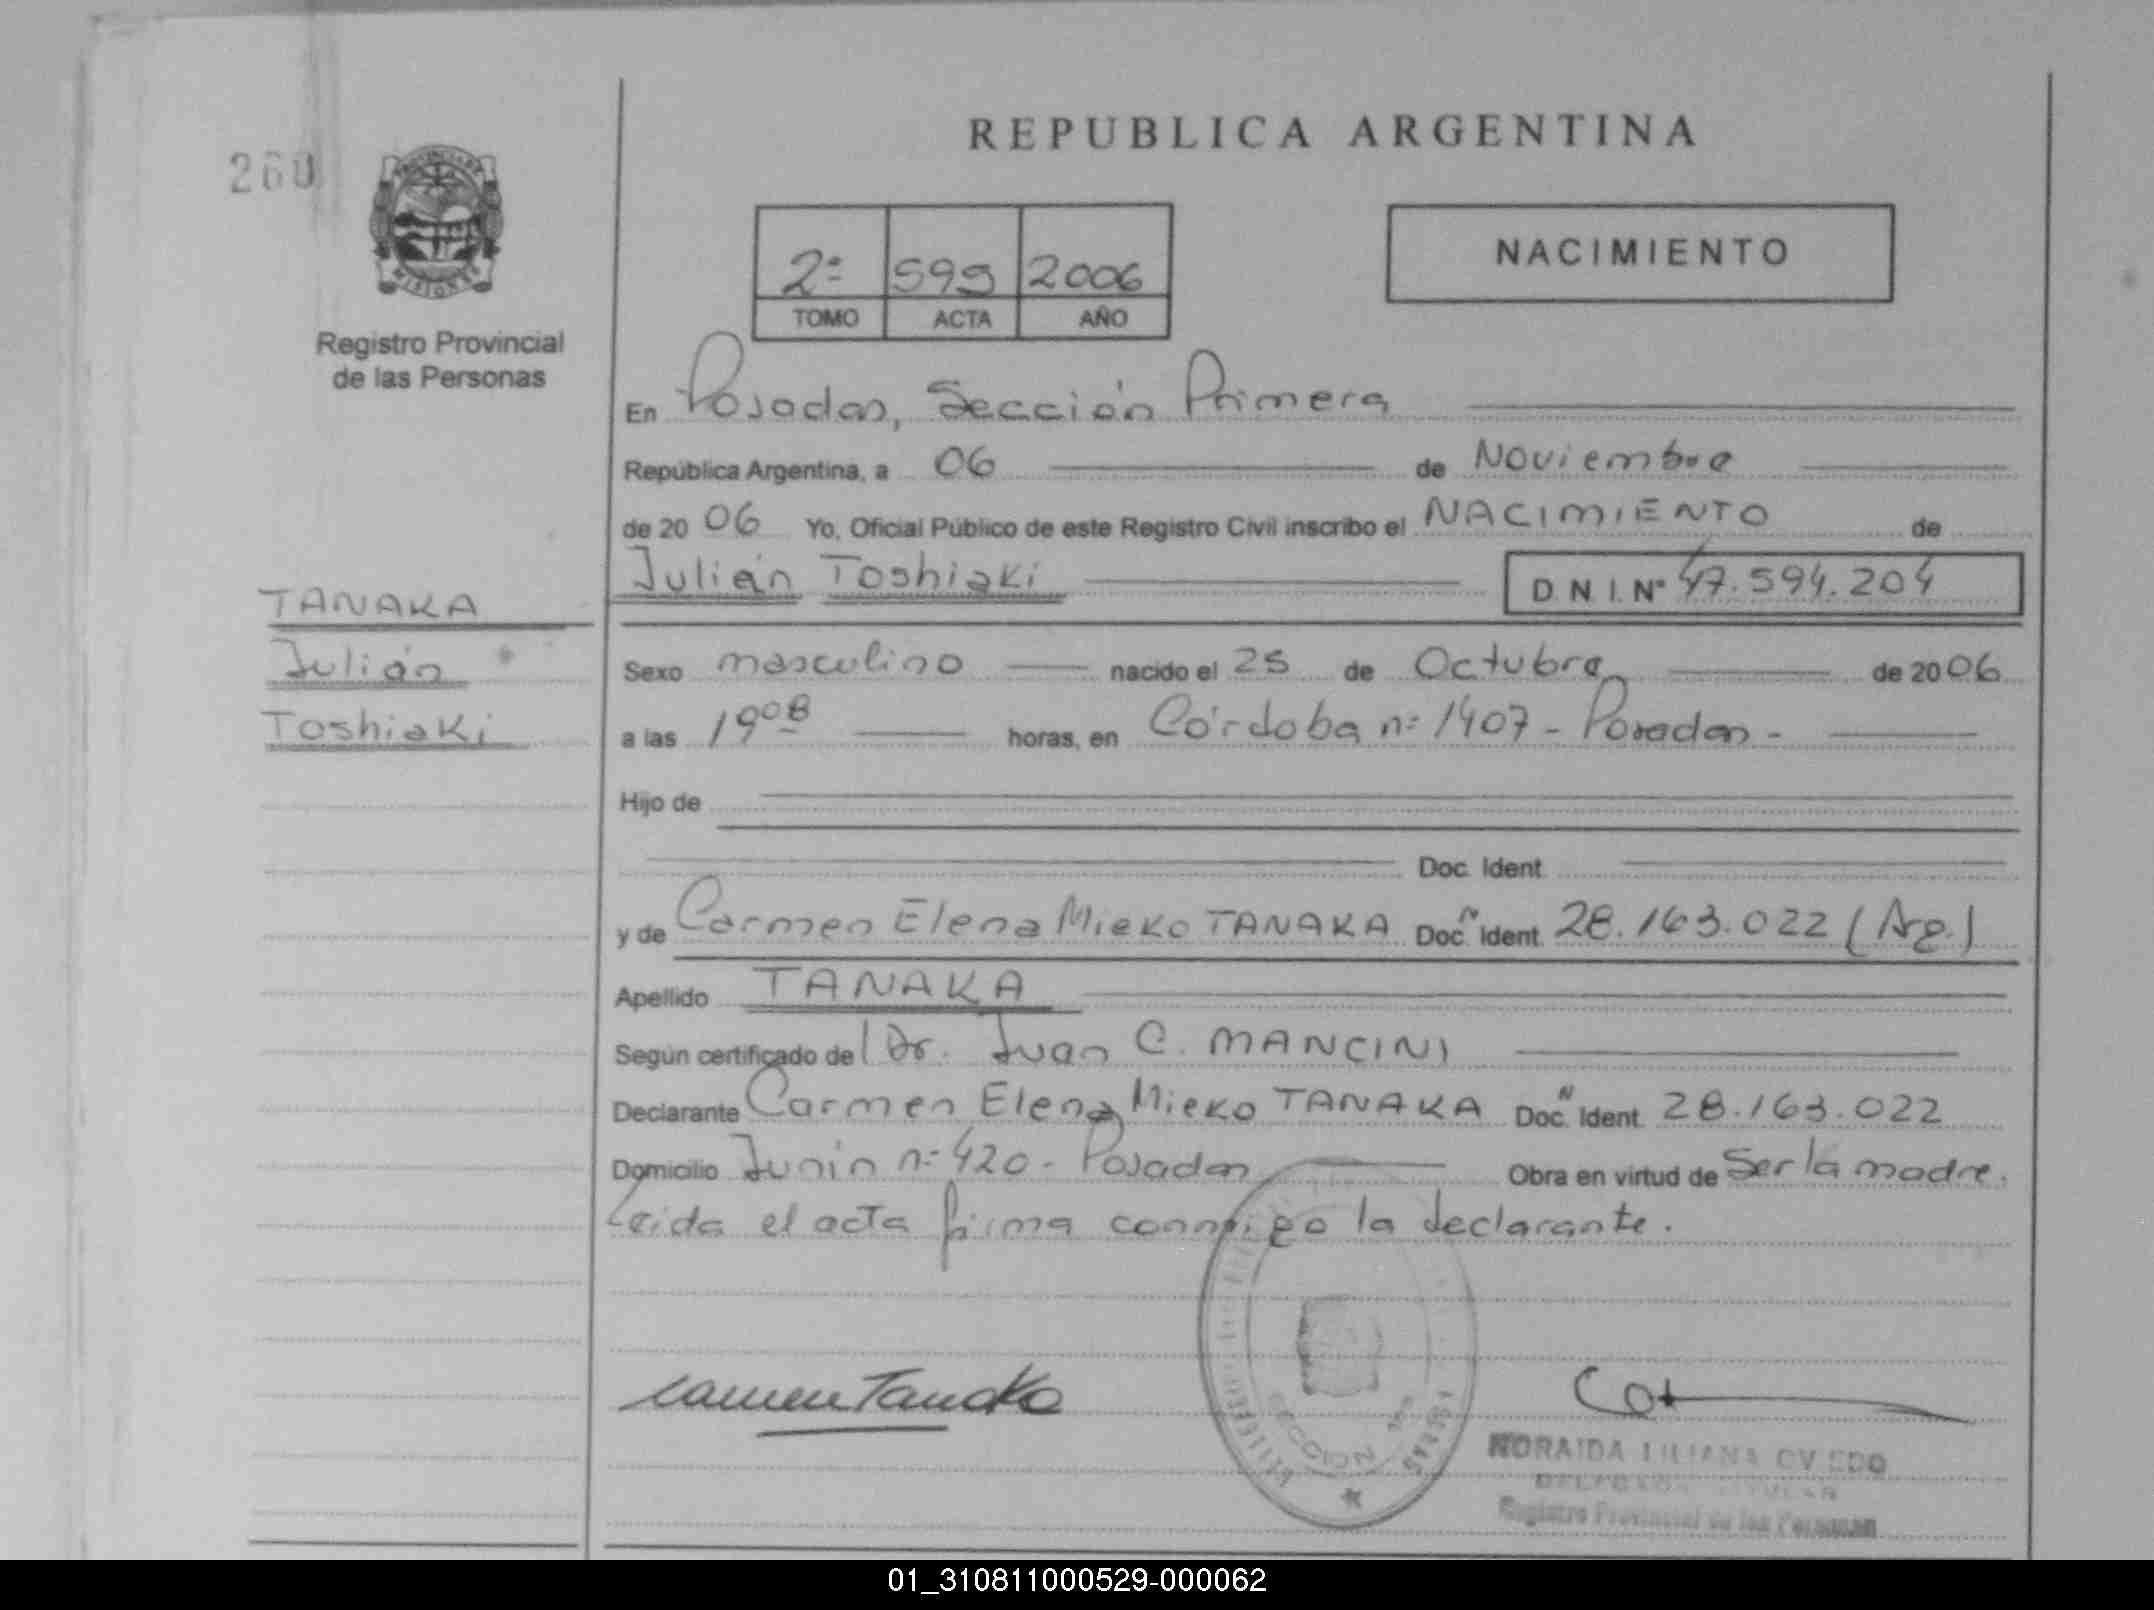 REPUBLICA ARGENTINA
260
PROVINCIA DE
MISIONES
Registro Provincial
de las Personas
2º 599 2006
TOMO ACTA AÑO
NACIMIENTO
En Posadas, Sección Primera
República Argentina, a 06 de Noviembre
de 20 06 Yo, Oficial Público de este Registro Civil inscribo el NACIMIENTO de
Julián Toshiaki D.N.I. Nº 47.594.204
TANAKA
Julián
Toshiaki
Sexo masculino nacido el 25 de Octubre de 20 06
a las 19 08 horas, en Córdoba nº 1407 - Posadas -
Hijo de
Doc. Ident.
y de Carmen Elena Mieko TANAKA Doc. N Ident. 28.163.022 (Arg.)
Apellido TANAKA
Según certificado del Dr. Juan C. MANCINI
Declarante Carmen Elena Mieko TANAKA Doc. N Ident. 28.163.022
Domicilio Junín nº 420 - Posadas Obra en virtud de Ser la madre.
Leida el acta firma conmigo la declarante.
Carmen Tanaka
SECCION 1ra
NORAIDA LILIANA OVIEDO
DELEGADA TITULAR
Registro Provincial de las Personas
01_310811000529-000062